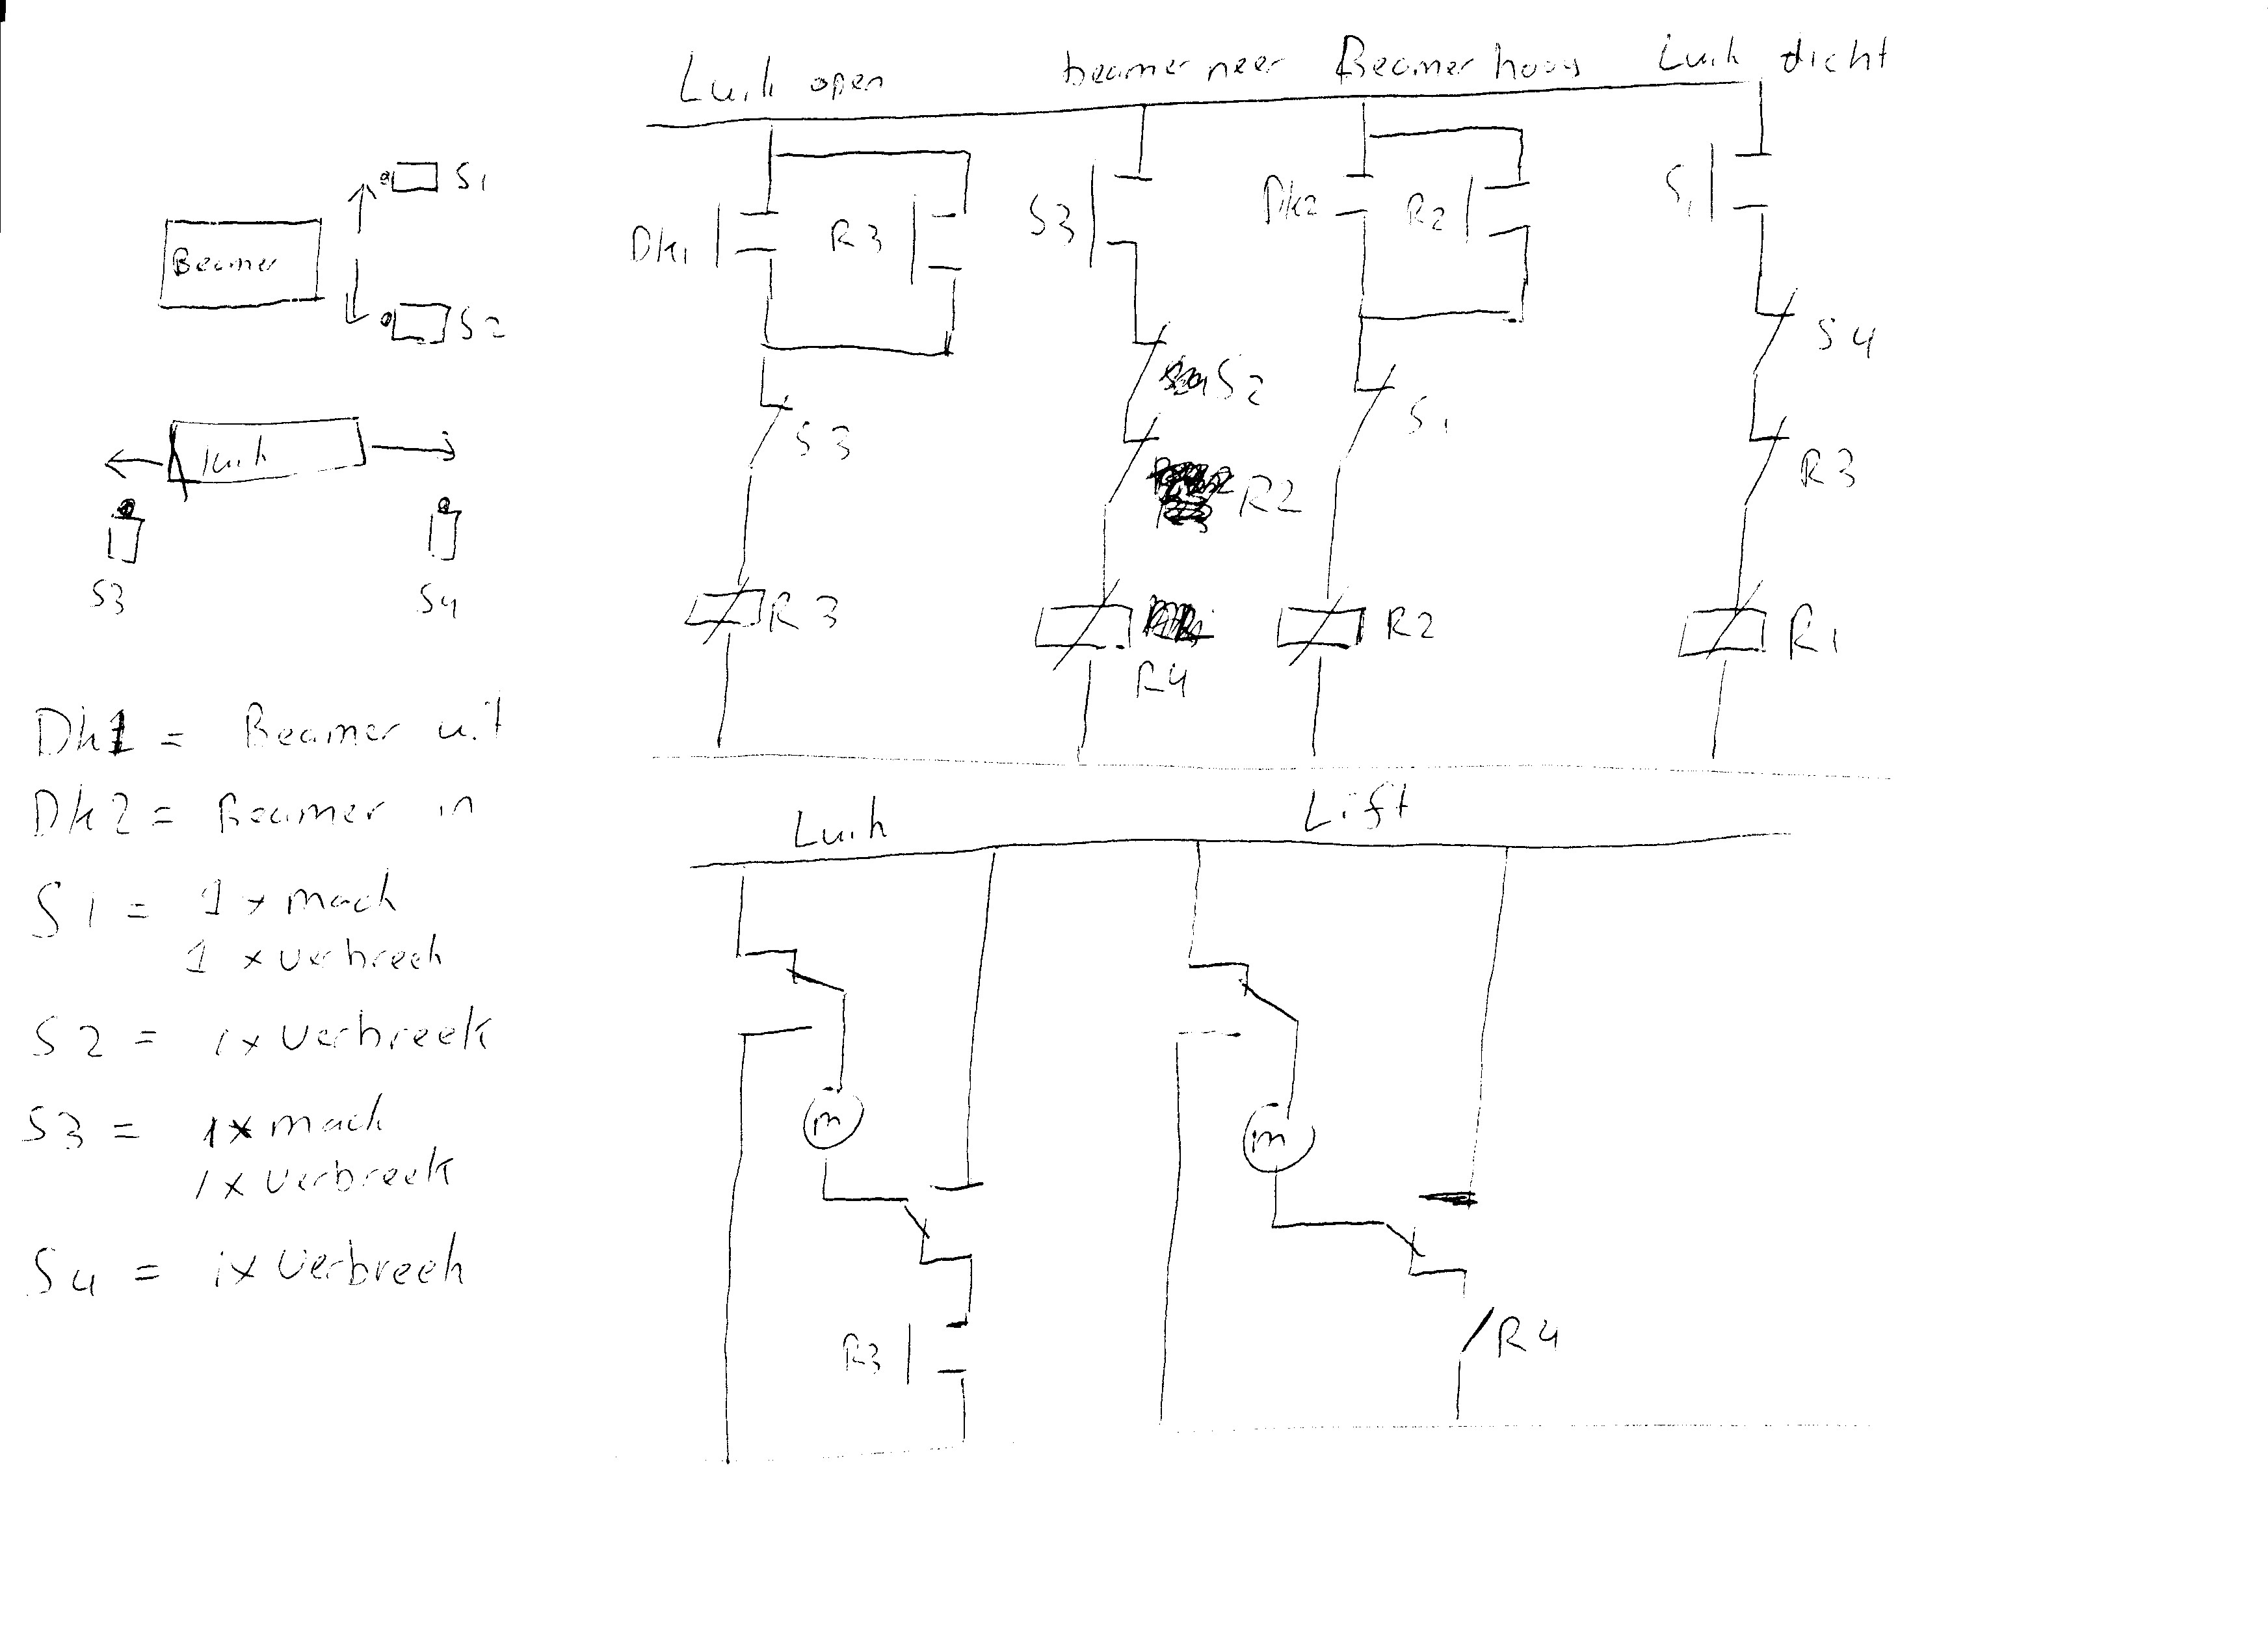 Luik open
beamer neer
Beamer hoog
Luik dicht
S1
Beamer
S2
luik
S3
S4
Dk1
R3
S3
Dk2
R2
S1
S2
S4
S3
R2
S1
R3
R3
R4
R2
R1
Dk1 = Beamer uit
Dk2 = Beamer in
S1 = 1 x mach
1 x verbreek
S2 = 1x verbreek
S3 = 1x mach
1x verbreek
S4 = 1x verbreek
Luik
Lift
m
m
R3
R4